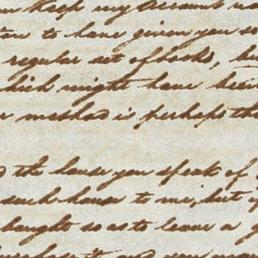 keep my account
to have given you
regular set of books,
which might have been
method is perhaps
the house you speak of
such house to me, but
bought so as to leave a